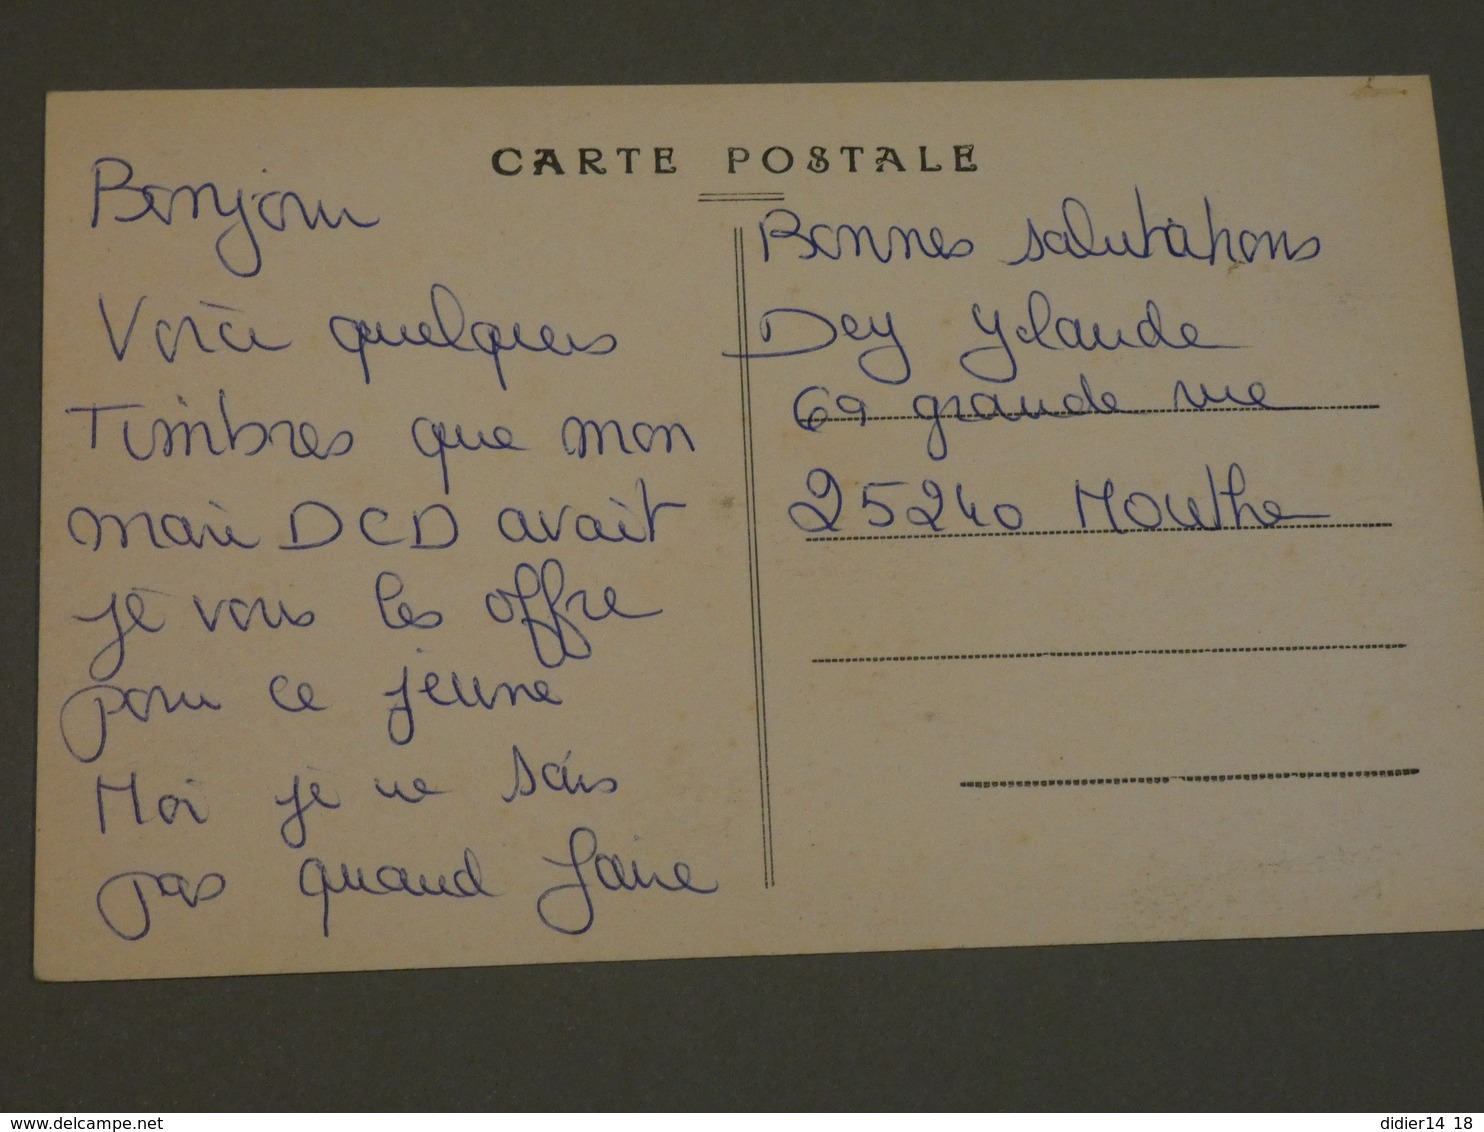 CARTE POSTALE
Bonjour
Voici quelques
Timbres que mon
mari DCD avait
je vous les offre
pour ce jeune
Moi je ne sais
pas quand faire
Bonnes salutations
Dey Ylaude
69 grande rue
25240 Mouthe
delcampe.net
didier14 18